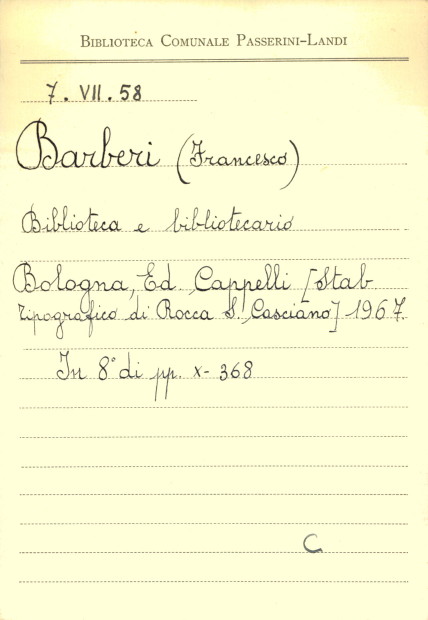 BIBLIOTECA COMUNALE PASSERINI-LANDI
7. VII. 58
Barberi (Francesco)
Biblioteca e bibliotecario
Bologna, Ed. Cappelli [Stab
tipografico di Rocca S. Casciano] 1967.
In 8° di pp. X-368
C